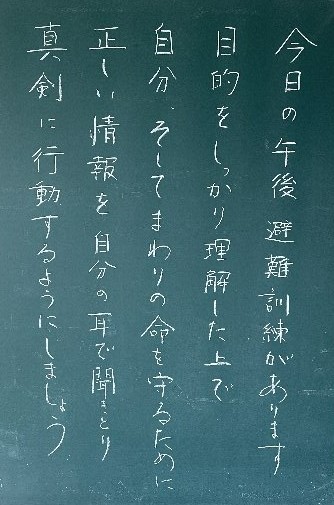 今日の午後避難訓練があります
目的をしっかり理解した上で
自分、そしてまわりの命を守るために
正しい情報を自分の耳で聞きとり
真剣に行動するようにしましょう